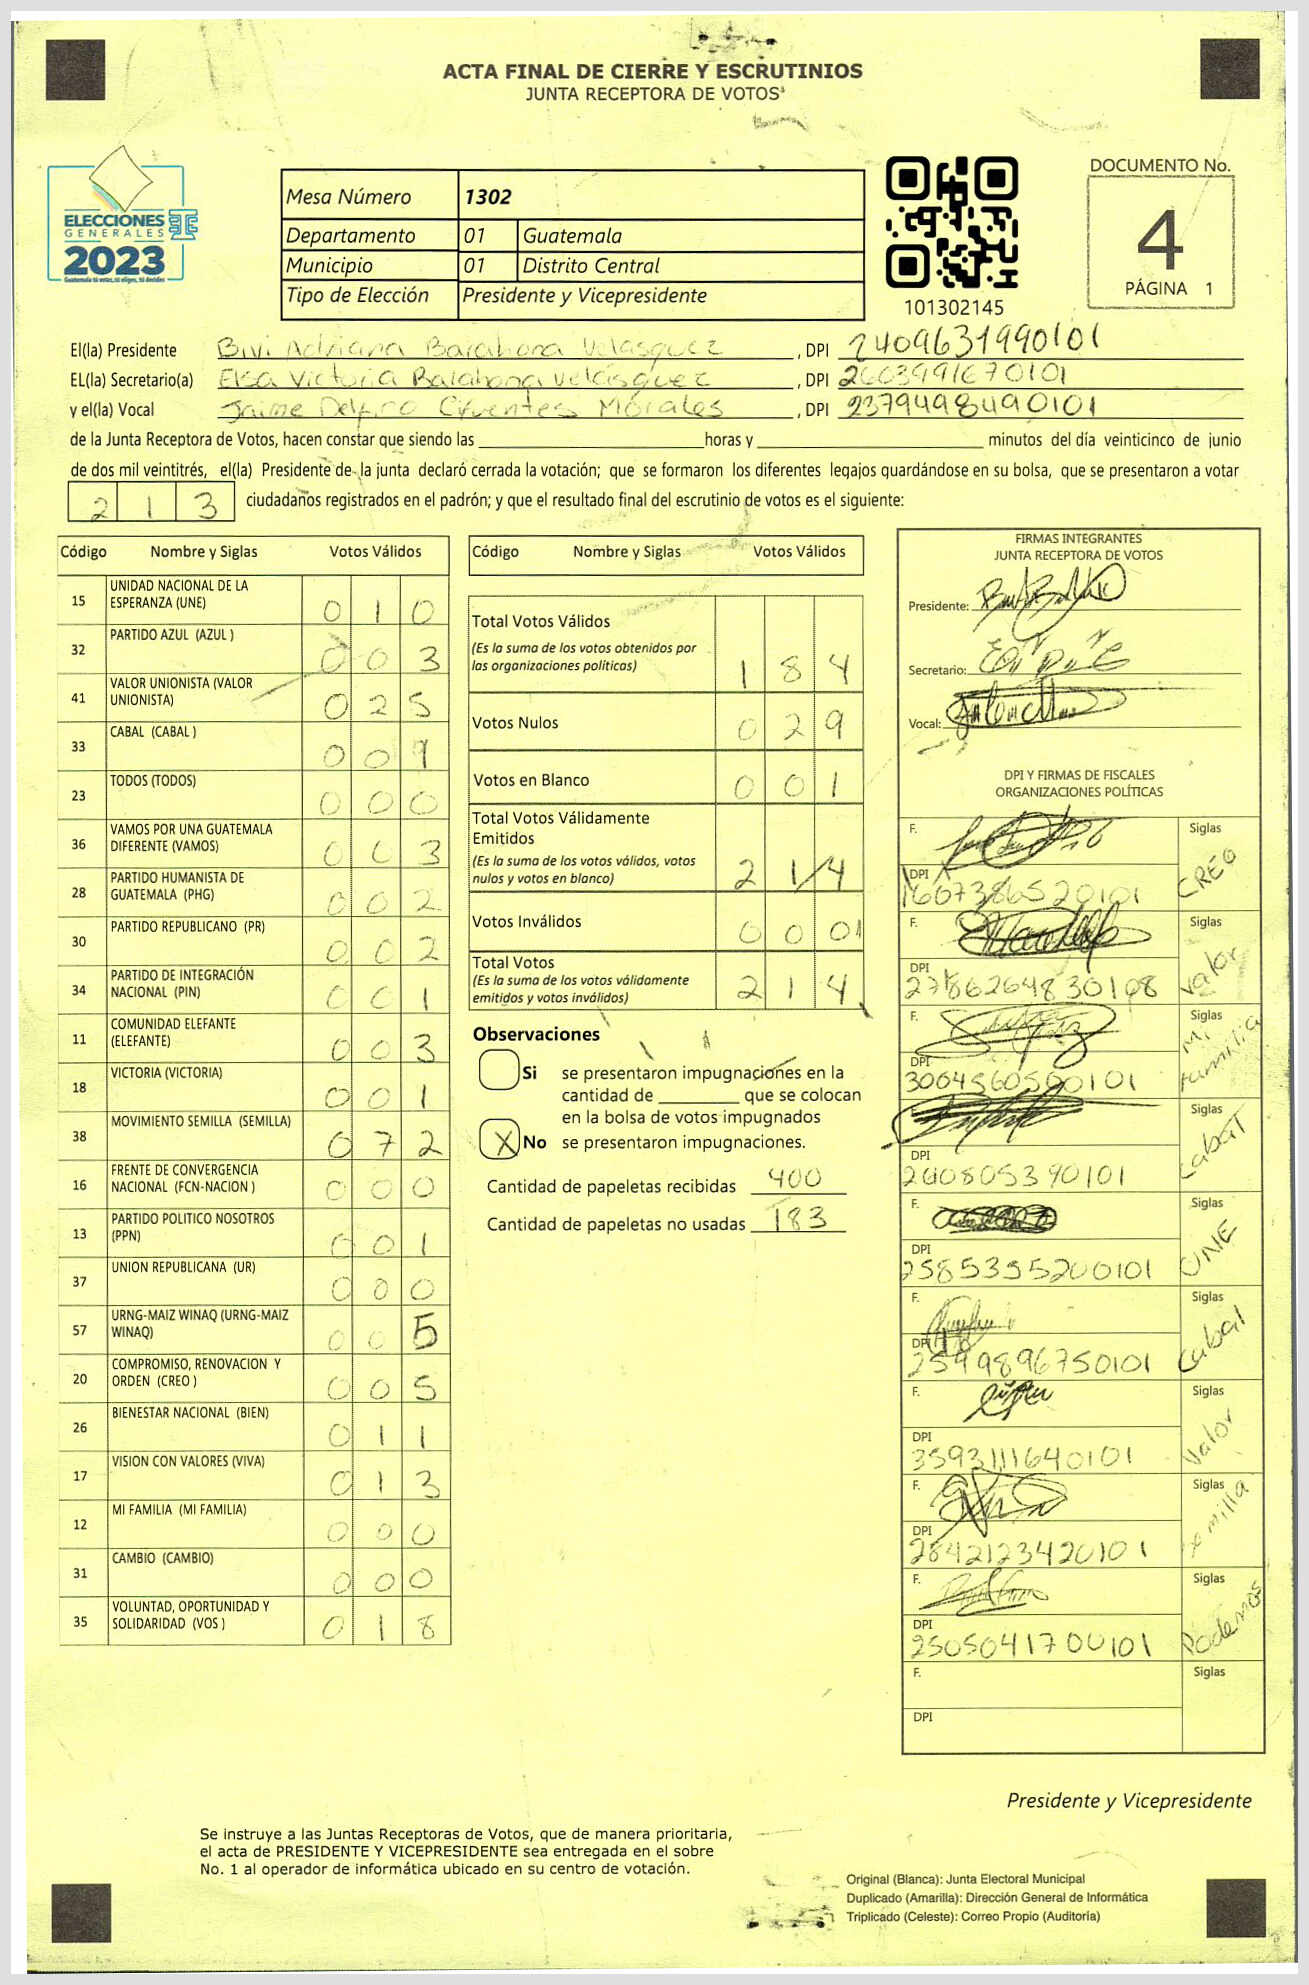 ACTA FINAL DE CIERRE Y ESCRUTINIOS
JUNTA RECEPTORA DE VOTOS³
ELECCIONES
GENERALES
2023
Guatemala tú votas, tú eliges, tú decides
Mesa Número 1302
Departamento 01 Guatemala
Municipio 01 Distrito Central
Tipo de Elección Presidente y Vicepresidente
101302145
DOCUMENTO No.
4
PÁGINA 1
El(la) Presidente Bivi Adriana Barahona Velasquez , DPI 2409631990101
EL(la) Secretario(a) Elsa Victoria Barahona Velásquez , DPI 2603991670101
y el(la) Vocal Jaime Delfino Cifuentes Morales , DPI 2379498490101
de la Junta Receptora de Votos, hacen constar que siendo las horas y minutos del día veinticinco de junio
de dos mil veintitrés, el(la) Presidente de la junta declaró cerrada la votación; que se formaron los diferentes legajos quardándose en su bolsa, que se presentaron a votar
213 ciudadanos registrados en el padrón; y que el resultado final del escrutinio de votos es el siguiente:
Código Nombre y Siglas Votos Válidos
15 UNIDAD NACIONAL DE LA ESPERANZA (UNE) 010
32 PARTIDO AZUL (AZUL ) 003
41 VALOR UNIONISTA (VALOR UNIONISTA) 025
33 CABAL (CABAL ) 009
23 TODOS (TODOS) 000
36 VAMOS POR UNA GUATEMALA DIFERENTE (VAMOS) 003
28 PARTIDO HUMANISTA DE GUATEMALA (PHG) 002
30 PARTIDO REPUBLICANO (PR) 002
34 PARTIDO DE INTEGRACIÓN NACIONAL (PIN) 001
11 COMUNIDAD ELEFANTE (ELEFANTE) 003
18 VICTORIA (VICTORIA) 001
38 MOVIMIENTO SEMILLA (SEMILLA) 072
16 FRENTE DE CONVERGENCIA NACIONAL (FCN-NACION ) 000
13 PARTIDO POLITICO NOSOTROS (PPN) 001
37 UNION REPUBLICANA (UR) 000
57 URNG-MAIZ WINAQ (URNG-MAIZ WINAQ) 005
20 COMPROMISO, RENOVACION Y ORDEN (CREO ) 005
26 BIENESTAR NACIONAL (BIEN) 011
17 VISION CON VALORES (VIVA) 013
12 MI FAMILIA (MI FAMILIA) 000
31 CAMBIO (CAMBIO) 000
35 VOLUNTAD, OPORTUNIDAD Y SOLIDARIDAD (VOS ) 018
Código Nombre y Siglas Votos Válidos
Total Votos Válidos 184
(Es la suma de los votos obtenidos por
las organizaciones políticas)
Votos Nulos 029
Votos en Blanco 001
Total Votos Válidamente
Emitidos 214
(Es la suma de los votos válidos, votos
nulos y votos en blanco)
Votos Inválidos 000
Total Votos 214
(Es la suma de los votos válidamente
emitidos y votos inválidos)
Observaciones
Si se presentaron impugnaciones en la
cantidad de que se colocan
en la bolsa de votos impugnados
X No se presentaron impugnaciones.
Cantidad de papeletas recibidas 400
Cantidad de papeletas no usadas 183
FIRMAS INTEGRANTES
JUNTA RECEPTORA DE VOTOS
Presidente:
Secretario:
Vocal:
DPI Y FIRMAS DE FISCALES
ORGANIZACIONES POLÍTICAS
F. Siglas CREO
DPI 1607386520101
F. Siglas Valor
DPI
F. Siglas Mi familia
DPI 3004560500101
F. Siglas Cabal
DPI
F. Siglas UNE
DPI 2585355200101
F. Siglas Cabal
DPI 2599896750101
F. Siglas Valor
DPI 3593111640101
F. Siglas
DPI 2842123420101
F. Siglas Podemos
DPI 2505041700101
F. Siglas
DPI
Presidente y Vicepresidente
Se instruye a las Juntas Receptoras de Votos, que de manera prioritaria,
el acta de PRESIDENTE Y VICEPRESIDENTE sea entregada en el sobre
No. 1 al operador de informática ubicado en su centro de votación.
Original (Blanca): Junta Electoral Municipal
Duplicado (Amarilla): Dirección General de Informática
Triplicado (Celeste): Correo Propio (Auditoría)